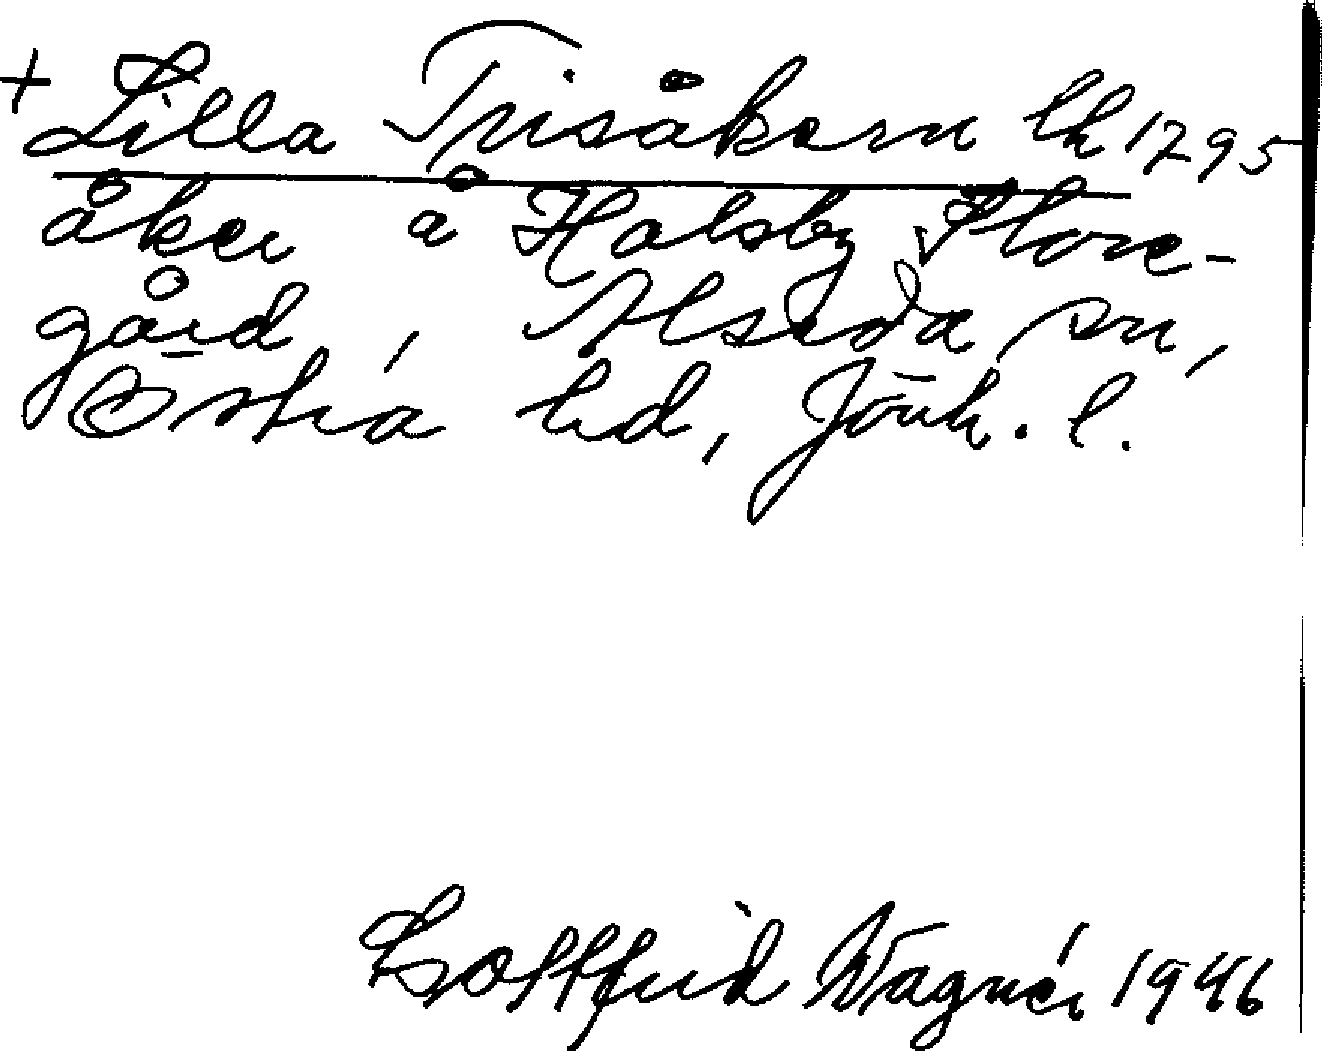 + Lilla Trisåkern lh 1795
åker å Holsby Store-
gård, Alseda sn,
Östra hd, Jönk. l.
Gottfrid Wagnér 1946